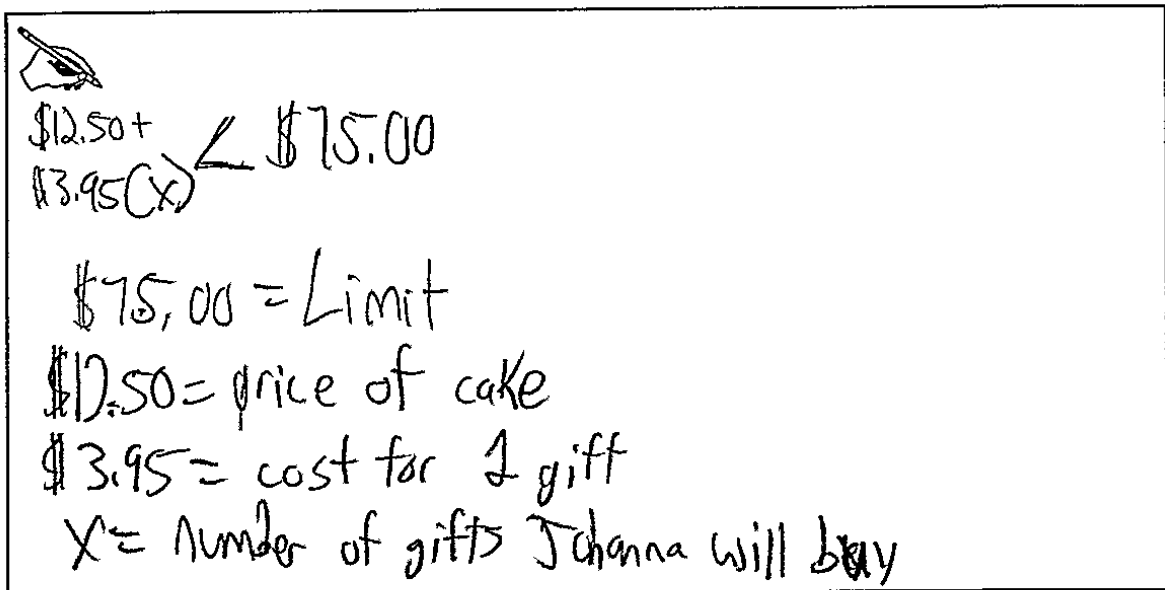 $12.50+
$3.95(x) < $75.00
$75.00 = Limit
$12.50= price of cake
$3.95= cost for 1 gift
X= number of gifts Johanna will buy